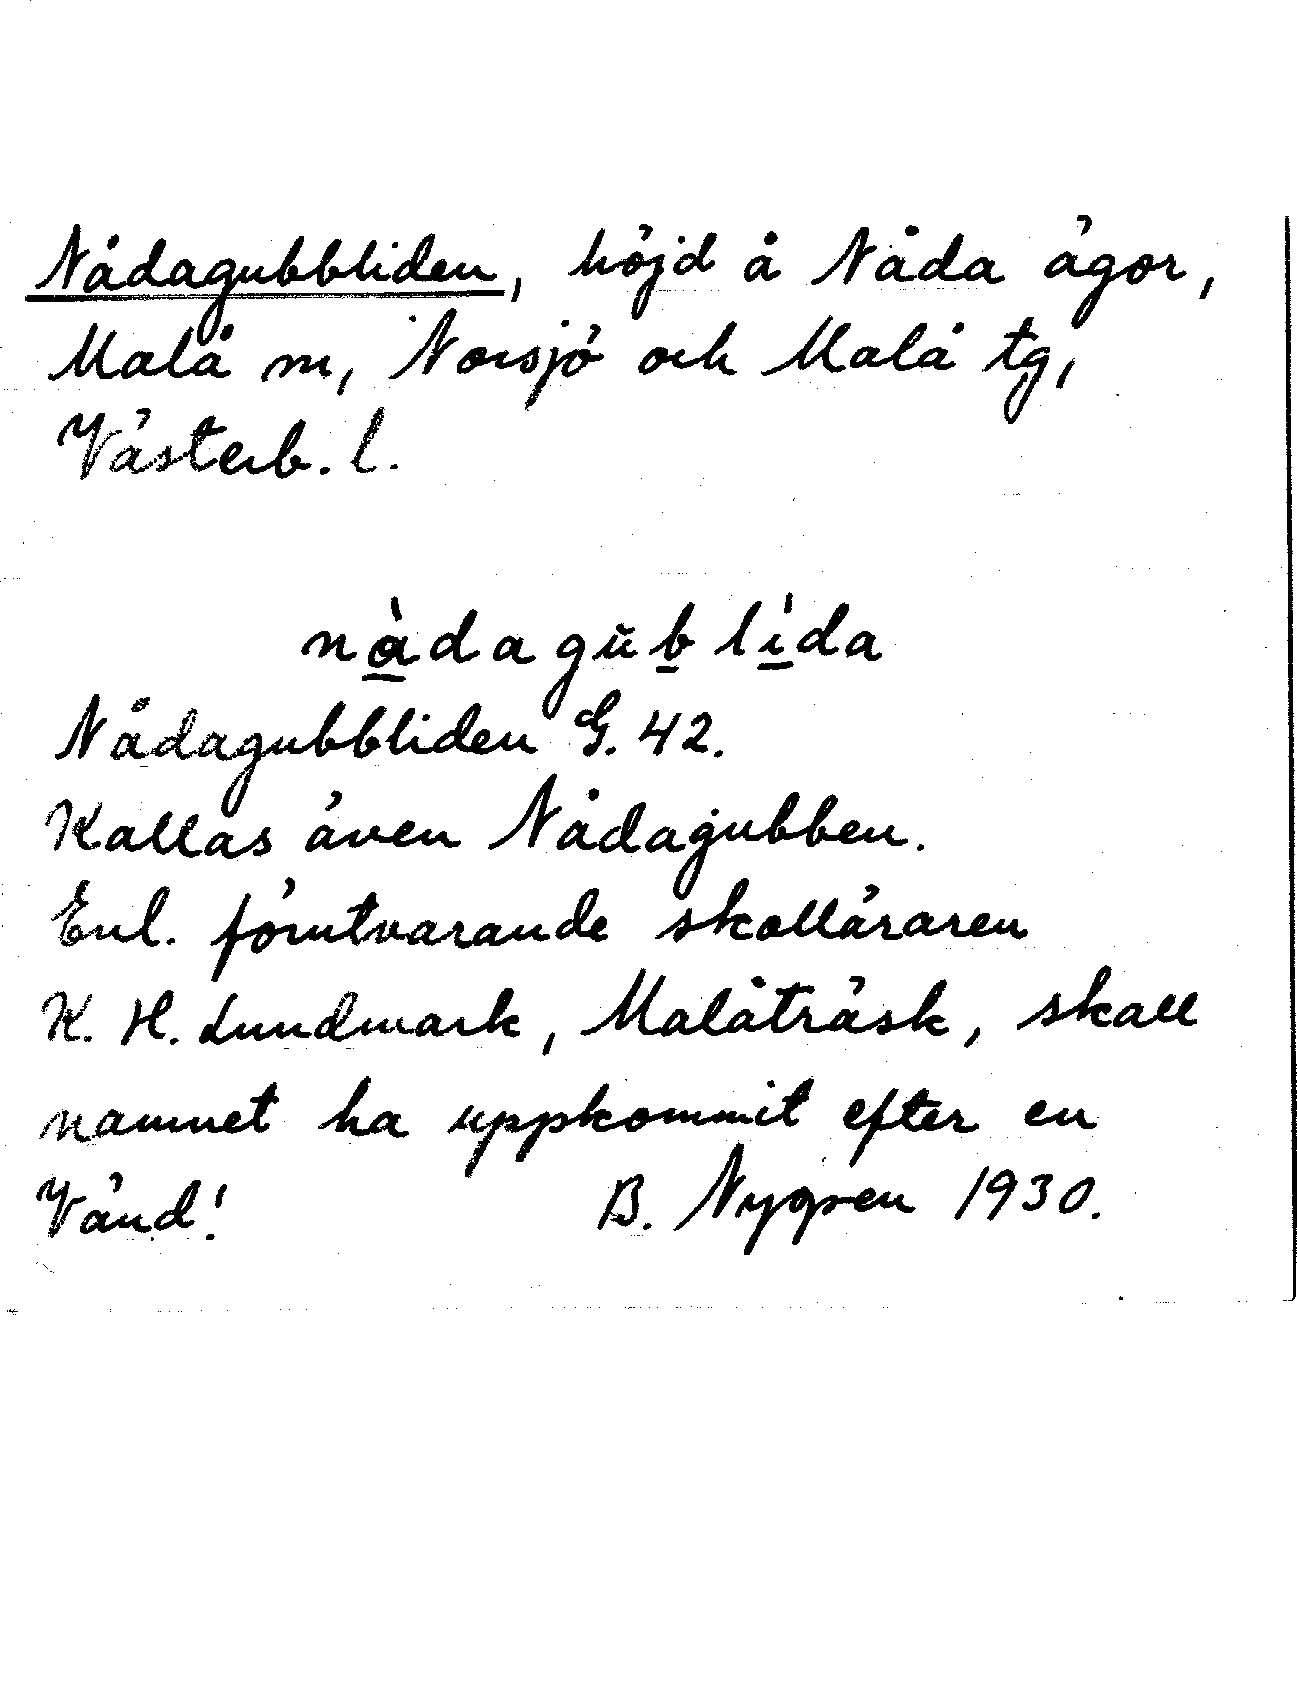 Nådagubbliden, höjd å Nåda ägor,
Malå sn, Norsjö och Malå tg,
Västerb. l.
nå̀dagŭb lìda
Nådagubbliden G. 42.
Kallas även Nådagubben.
Enl. förutvarande skolläraren
K. H. Lundmark, Malåträsk, skall
namnet ha uppkommit efter en
Vänd! B. Nygren 1930.